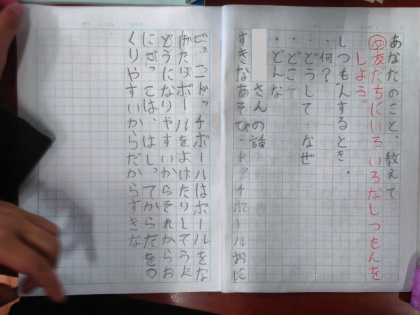 あなたのこと、教えて
㋱友だちにいろいろなしつもんを
しよう。
しつもんするとき。
・何?
・どうして・なぜ
・どこで
・どんな
さんの話
すきなあそび・ドッチボールおに
ごっこドッチボールはボールをな
げたりボールをよけたりしてうん
どうになりやすいからそれからお
にごっこは、はしってからだをつ
くりやすいからだからすきな